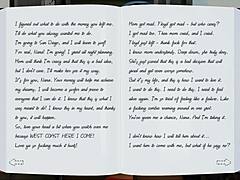 I figured out what to do with the money you left me.
I'll do what you always wanted me to do.
I'm going to San Diego, and I will learn how to surf!
I'm mad, Nana! I'm going! I spent all night planning.
Mom will think I'm crazy and that this is a bad idea,
but I don't care. I'll make her see it my way.
It's for you, Nana. Your money will help me achieve
my dream; I will become a surfer and prove to
everyone that I can do it. I know that this is what I
was meant to do! I know this in my heart, and thanks
to you, it will happen.
So, turn your head a bit when you watch over me
because WEST COAST HERE I COME!
Love you so fucking much it hurts!
Mom got mad. Floyd got mad - but who cares?
I got mad too. Then mom cried, and I cried.
Floyd just left - thank fuck for that.
I know mom understands. Deep down, she truly does.
She's just scared that this is a bad decision that will
and good and even worse somehow.
But it's my life, and this is how I want to live it.
I want to do this, I need to do this, I need to feel
alive again. I'm so tired of feeling like a failure. Like
a fucking zombie roaming around in my own pity.
You've given me a chance, Nana. And I'm taking it.
I don't know how I will tell him about it...
I want him to come with me, but what if he says no?